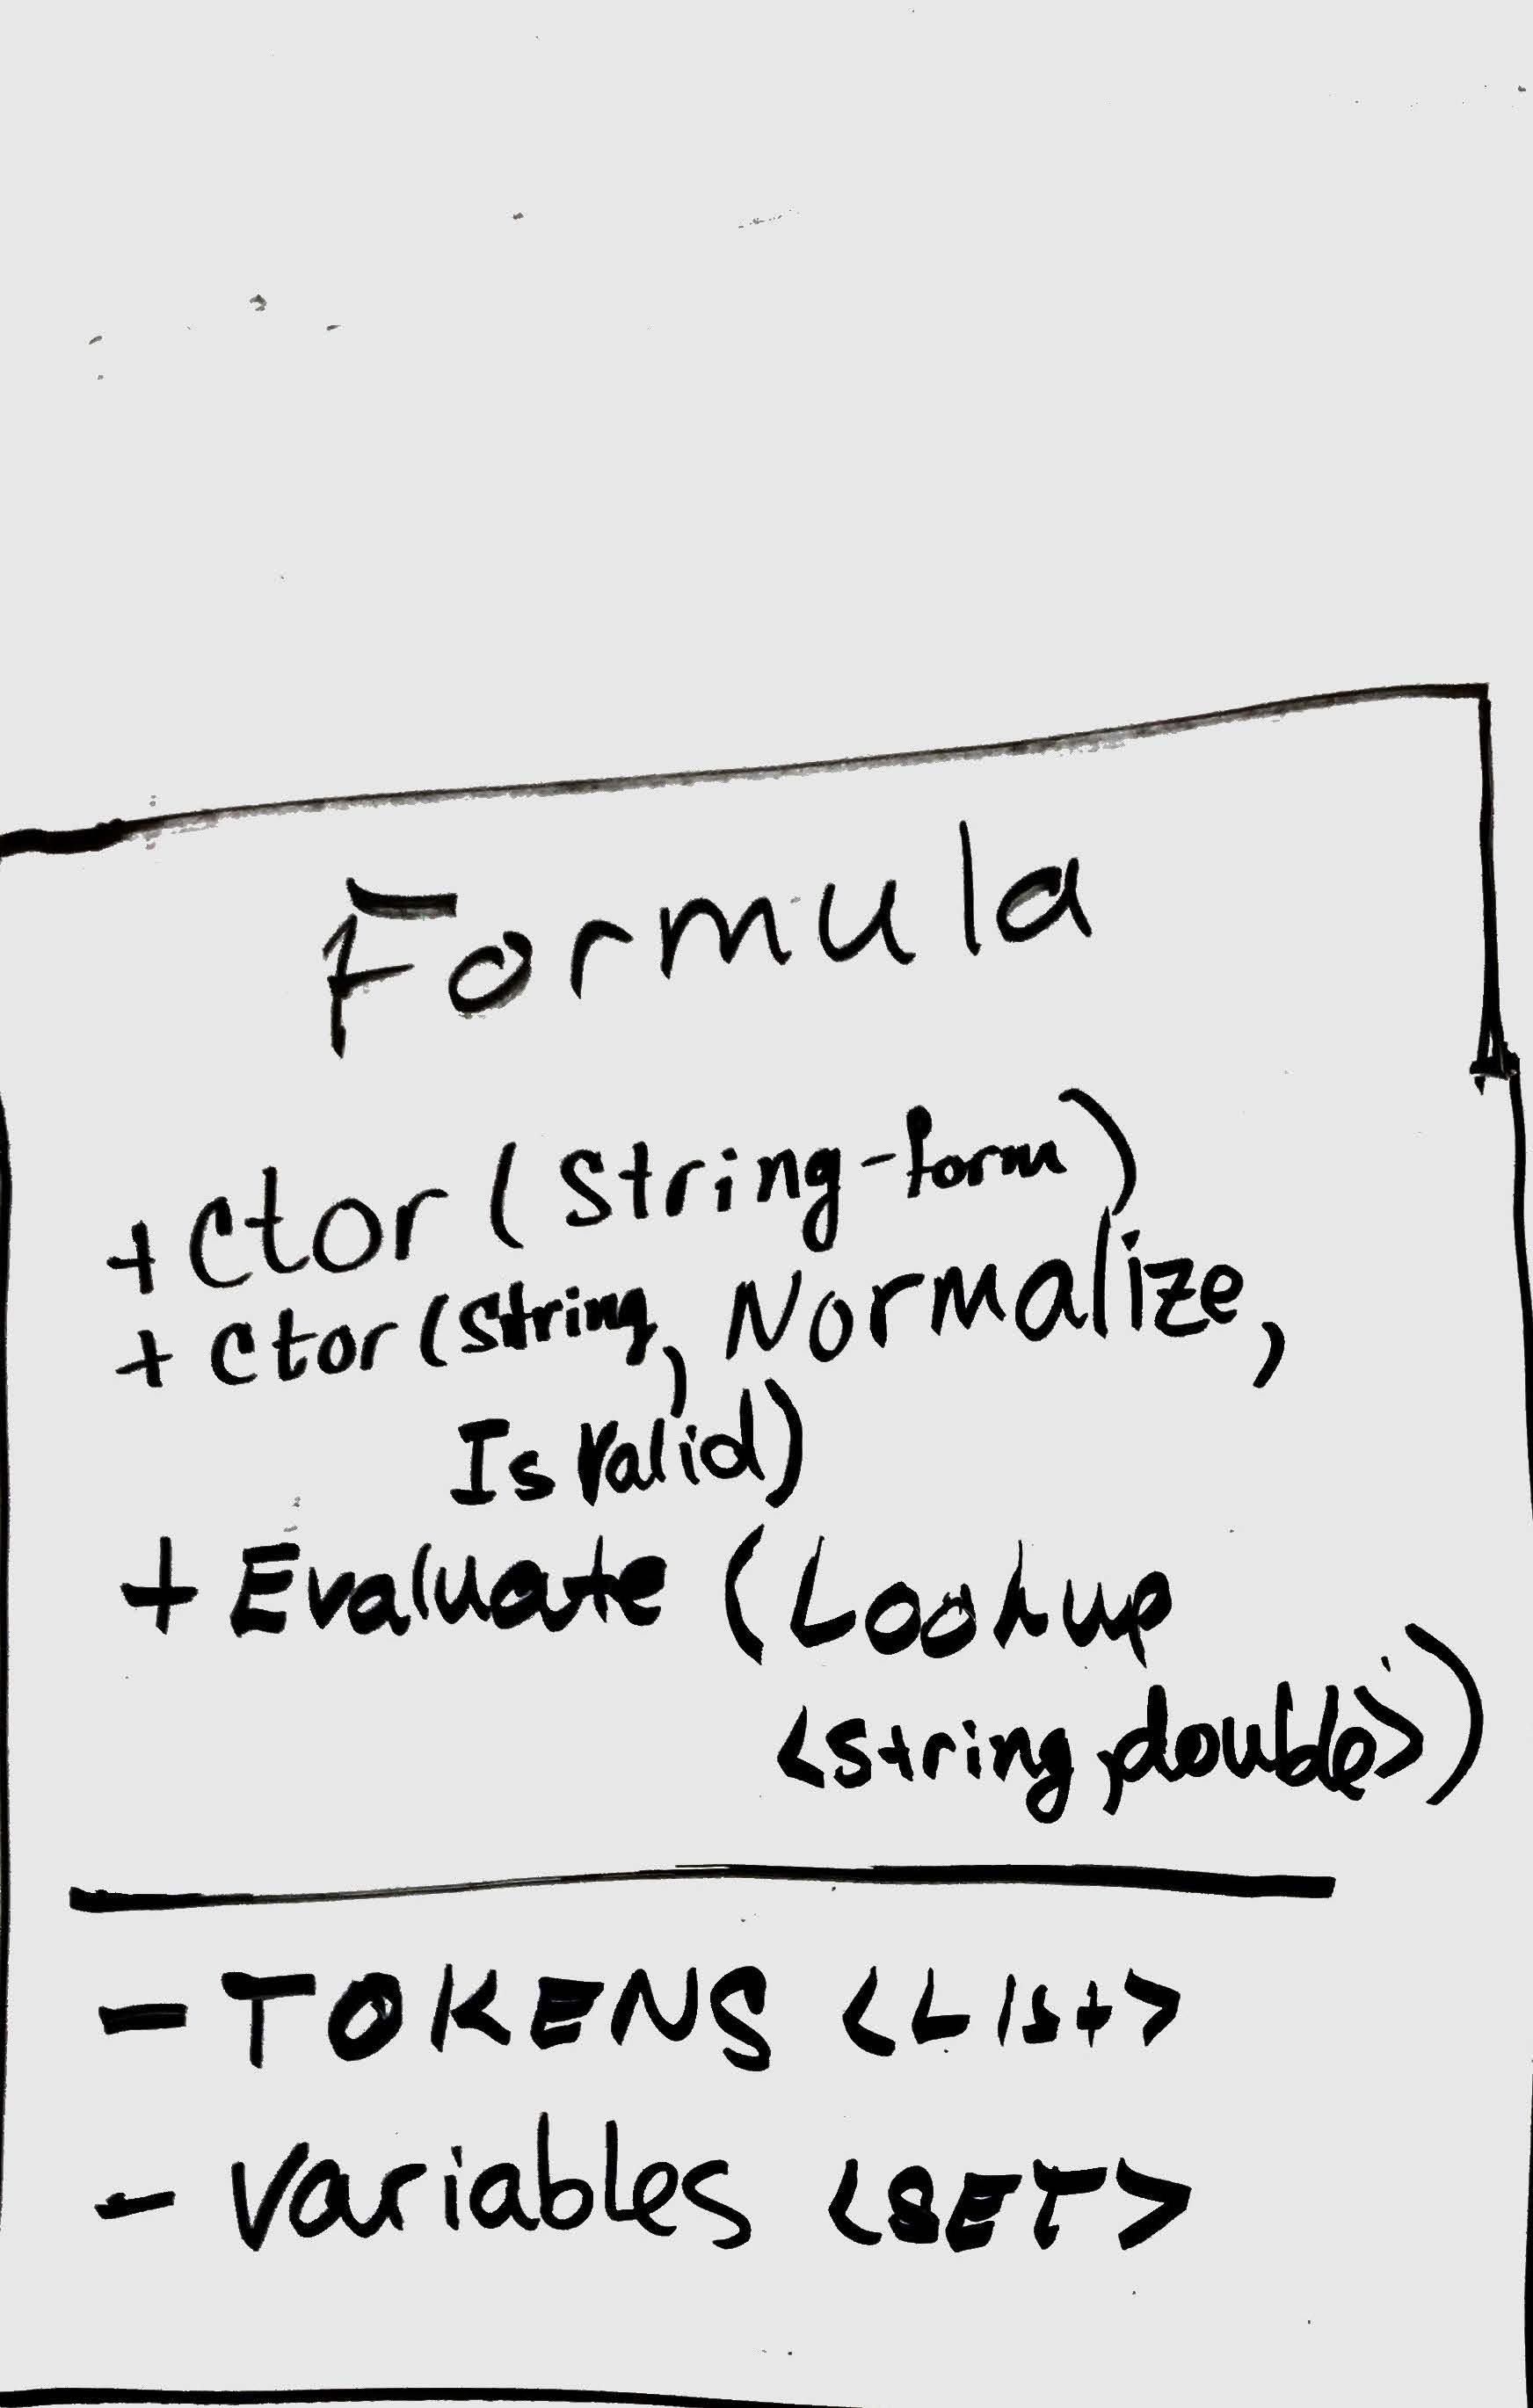 Formula
+ Ctor (String-form)
+ Ctor (String, Normalize,
Is Valid)
+ Evaluate (Lookup
<string, double>)
- TOKENS <List>
- Variables <SET>